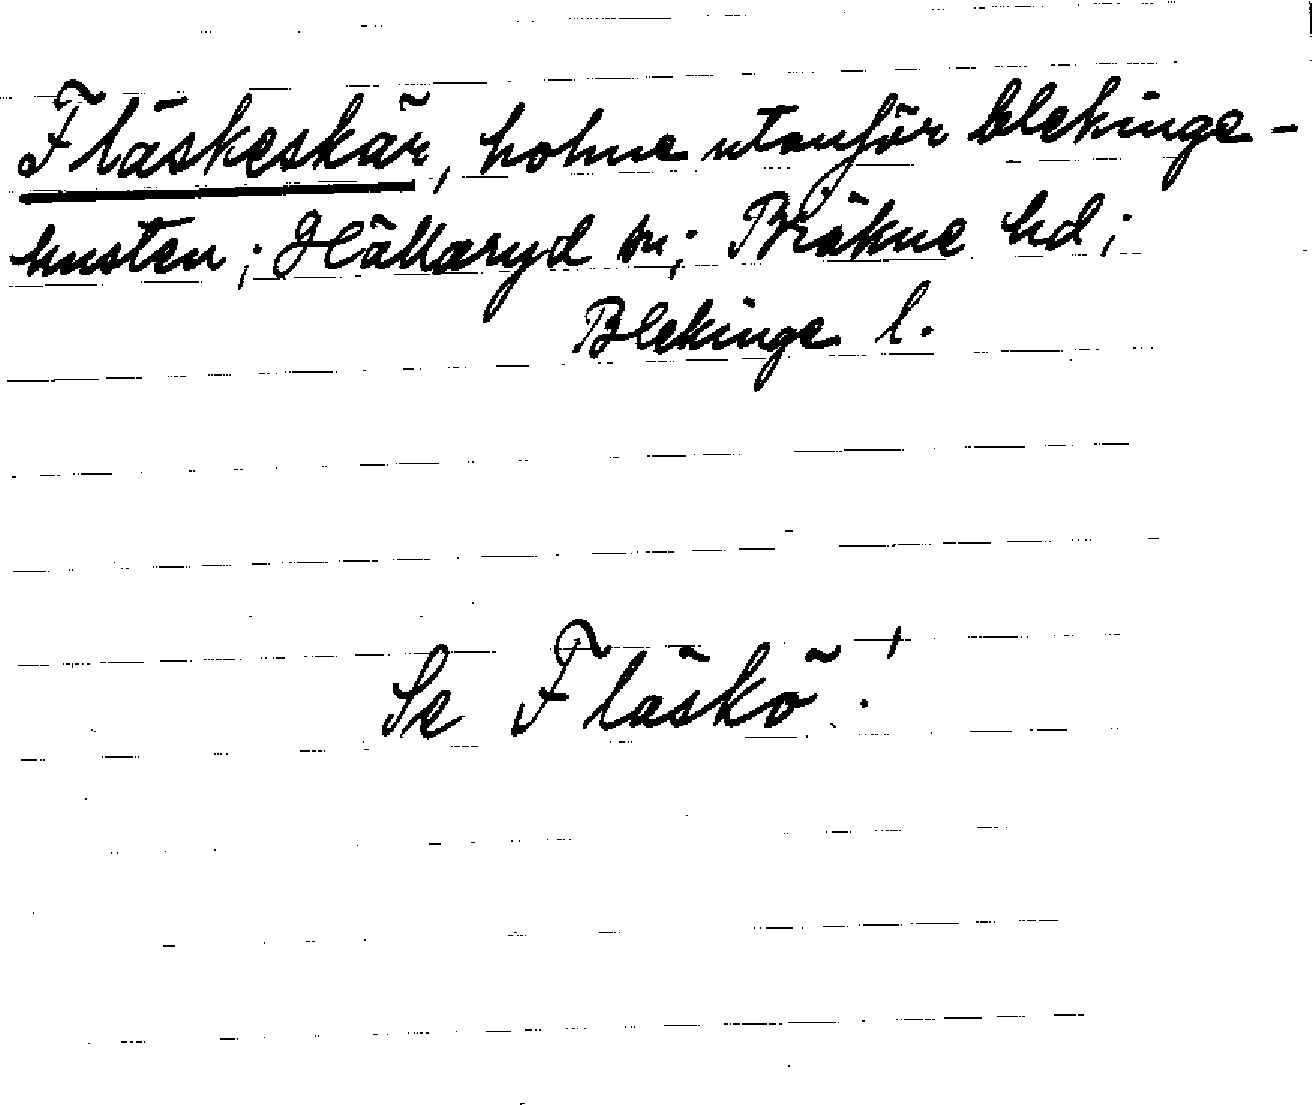 Fläskeskär, holme utanför blekinge-
kusten; Hällaryd sn; Bräkne hd;
Blekinge l.
Se Fläskö!